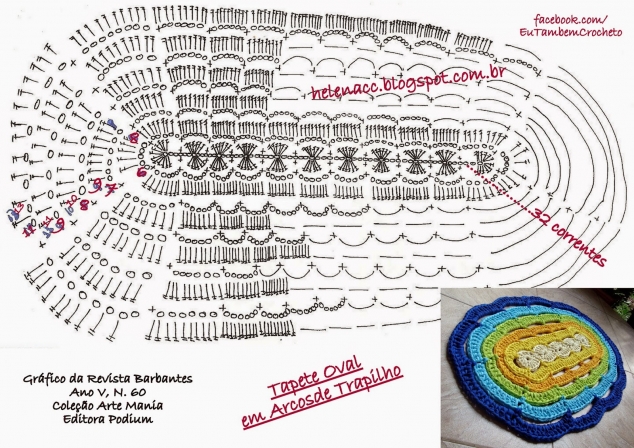 facebook.com/
EuTambemCrocheto
helenacc.blogspot.com.br
32 correntes
Tapete Oval
em Arcosde Trapilho
Gráfico da Revista Barbantes
Ano V, N. 60
Coleção Arte Mania
Editora Podium